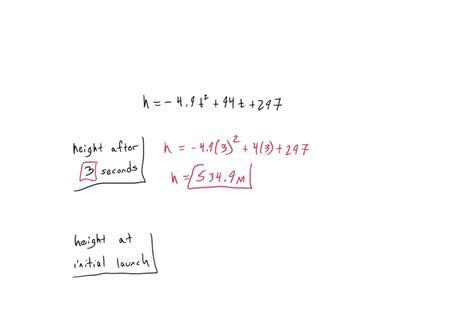 h = -4.9t² + 94t + 297
height after
3 seconds
h = -4.9(3)² + 4(3) + 297
h = 534.9m
height at
initial launch